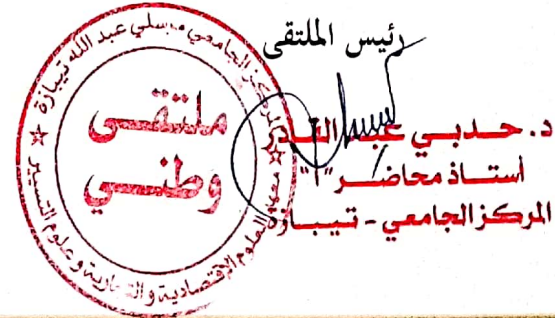 رئيس الملتقى
د. حدبي عبد القادر
أستاذ محاضر "أ"
المركز الجامعي - تيبازة
المركز الجامعي مرسلي عبد الله تيبازة
ملتقى
وطني
معهد العلوم الاقتصادية والتجارية وعلوم التسيير